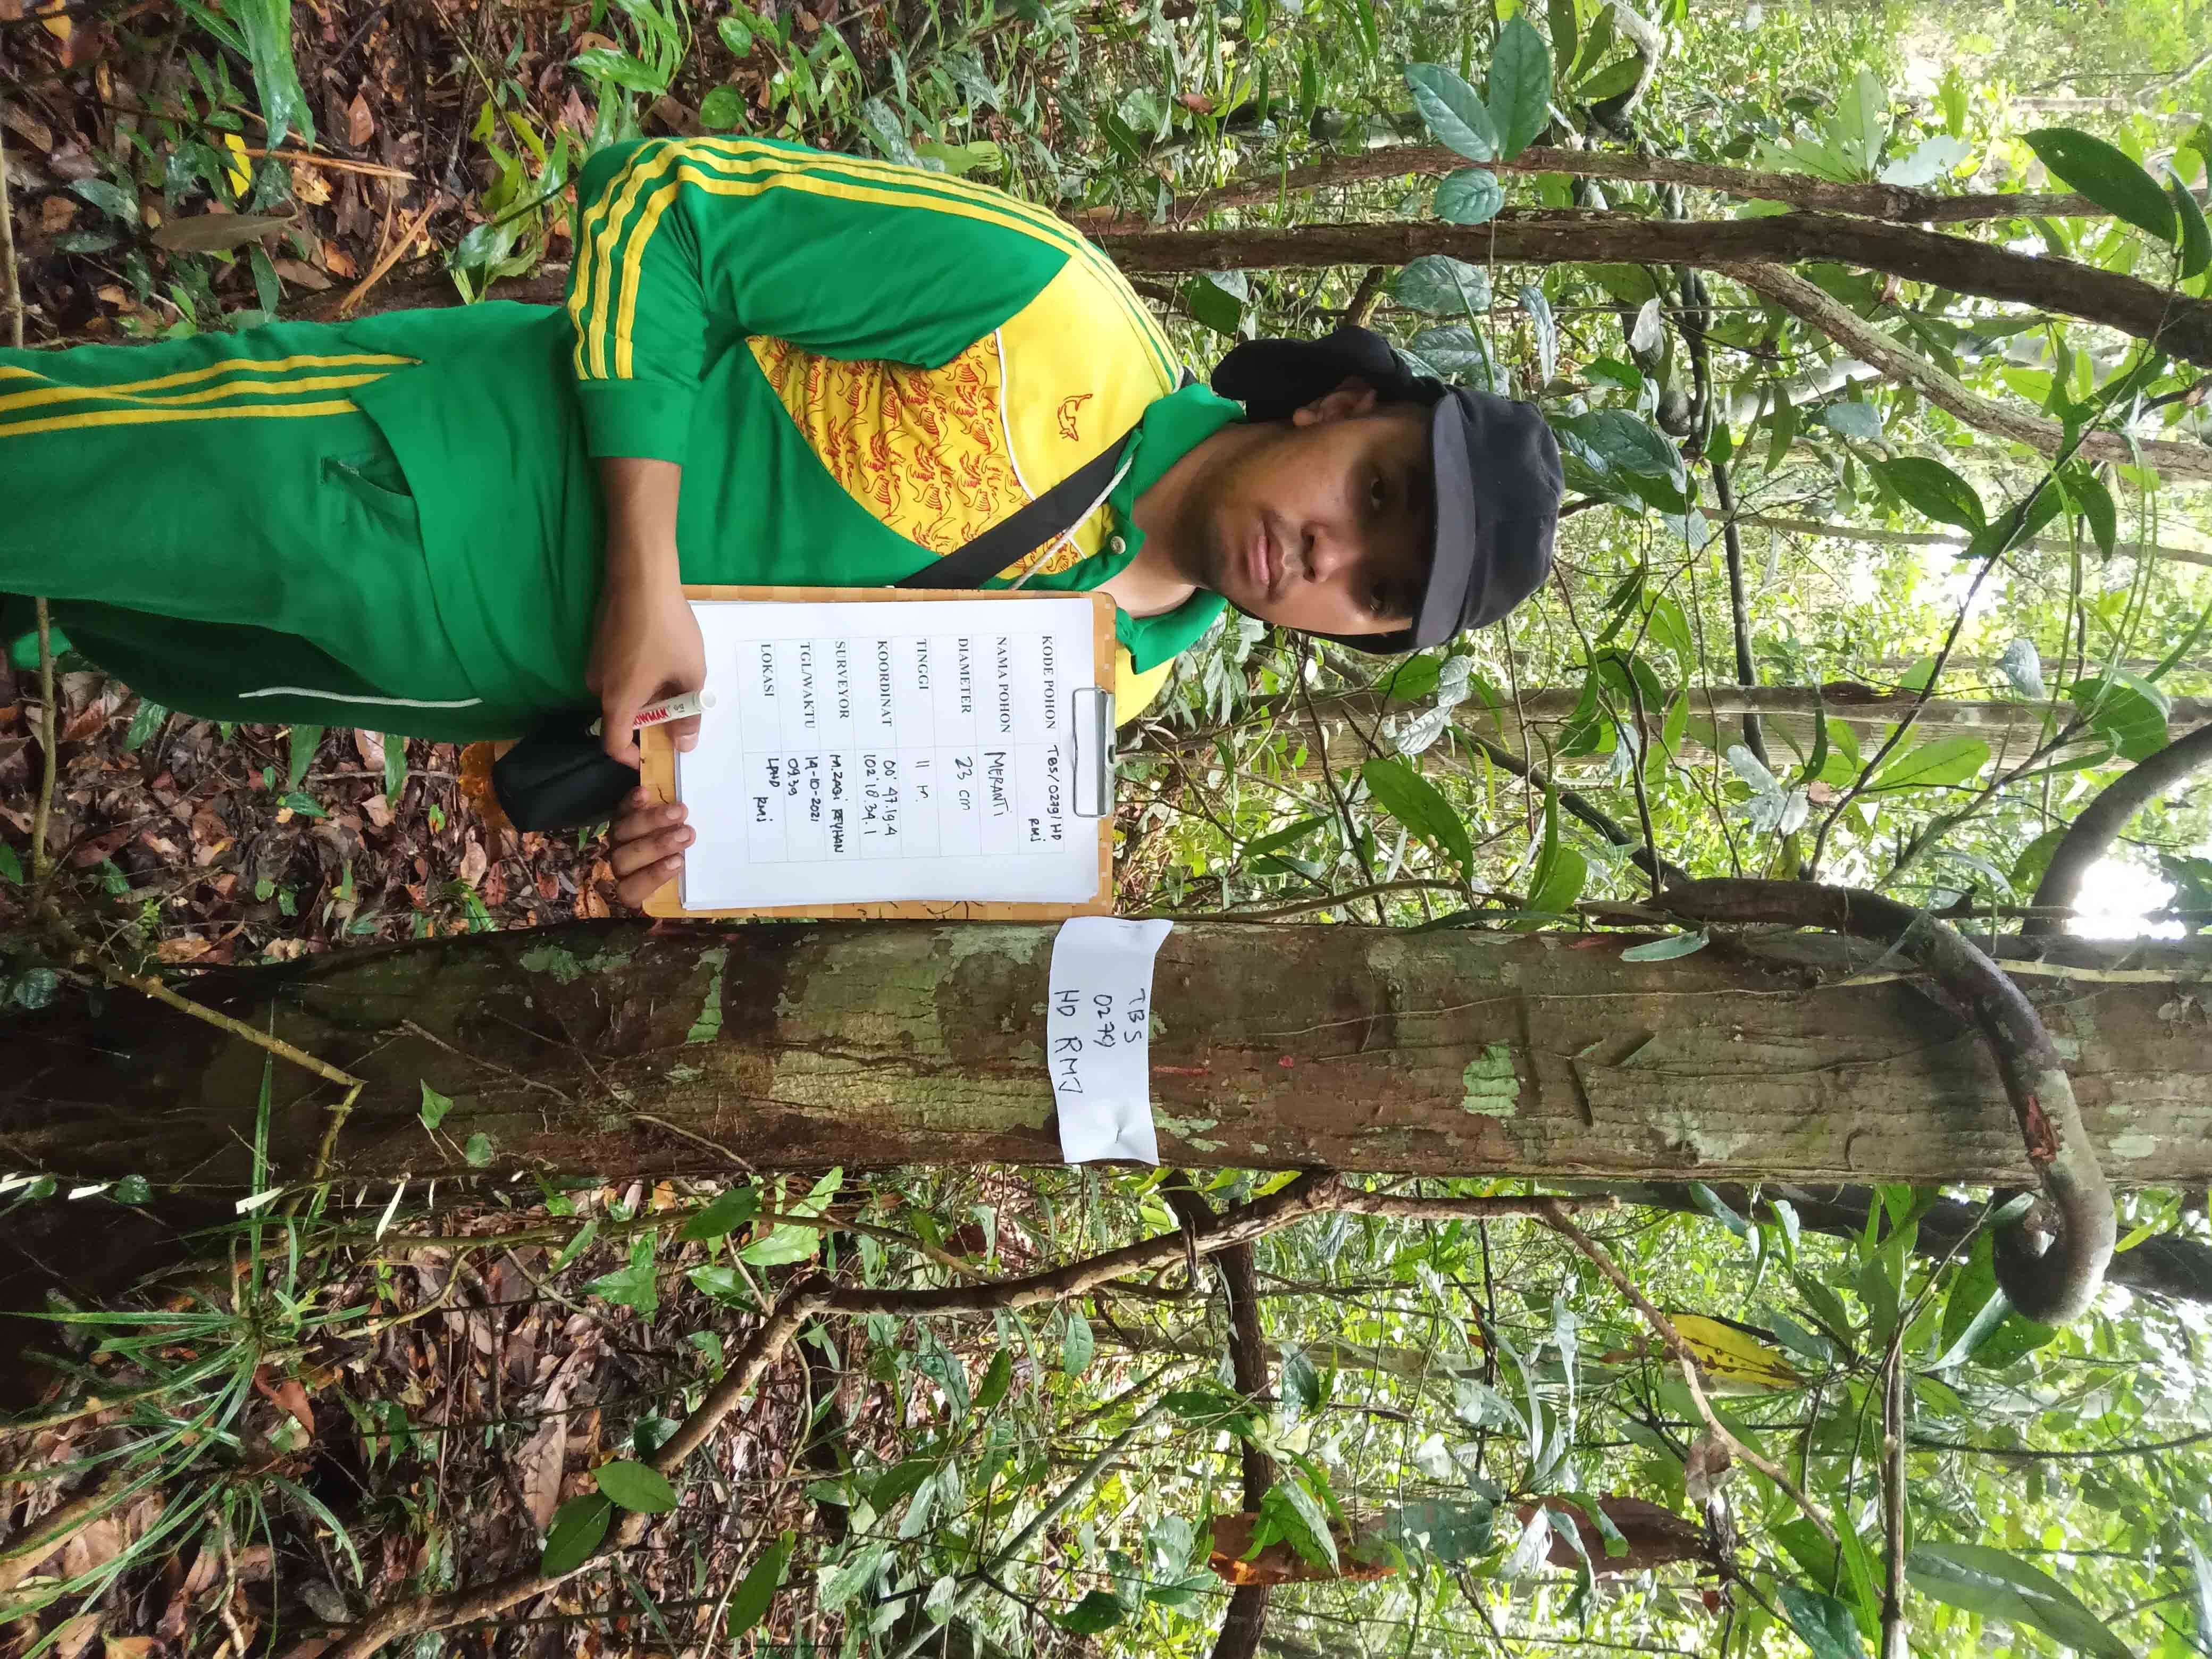 KODE POHON TBS/0279/HD
RMJ
NAMA POHON MERANTI
DIAMETER 23 cm
TINGGI 11 M.
KOORDINAT 00° 47.19.4
102° 10.34.1
SURVEYOR M.ZAQI REYHAN
TGL/WAKTU 14-10-2021
09.39
LOKASI LPHD RMJ
SNOWMAN
TBS
0279
HD RMJ